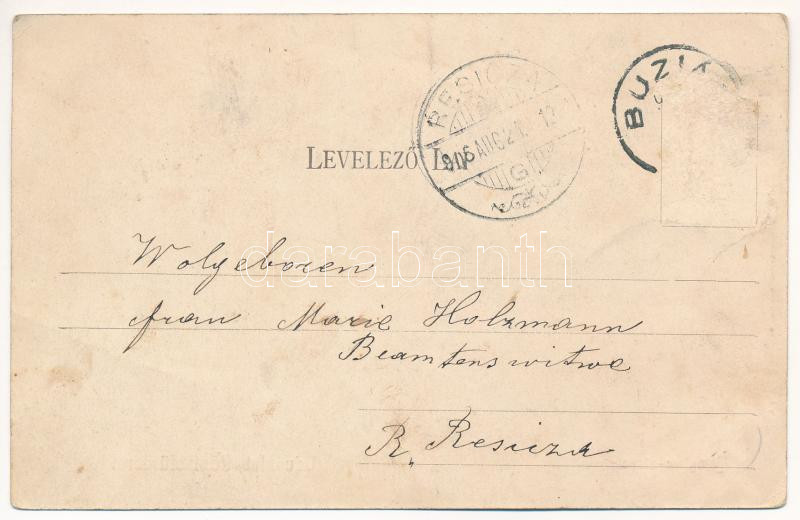 RESICZA
BUZIÁ
LEVELEZŐ LAP
905 AUG 21
G
darabanth
Wolgeboren
frau Marie Holzmann
Beamtenswitwe
R. Resicza